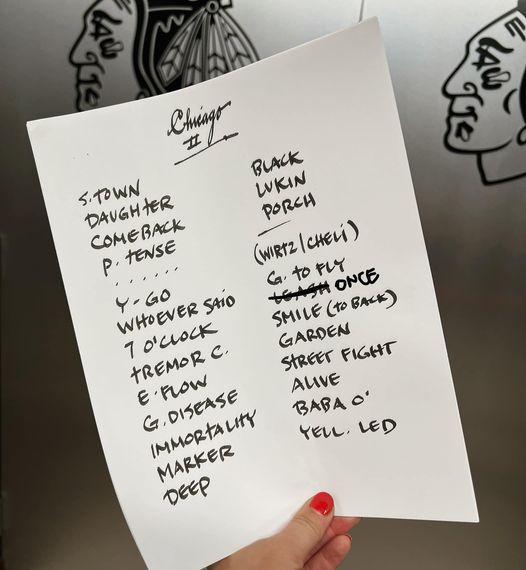 Chicago
II
S. TOWN
DAUGHTER
COMEBACK
P. TENSE
.......
Y - GO
WHOEVER SAID
7 O'CLOCK
TREMOR C.
E. FLOW
G. DISEASE
IMMORTALITY
MARKER
DEEP
BLACK
LUKIN
PORCH
(WIRTZ/CHELI)
G. TO FLY
LEASH ONCE
SMILE (TO BACK)
GARDEN
STREET FIGHT
ALIVE
BABA O'
YELL. LED